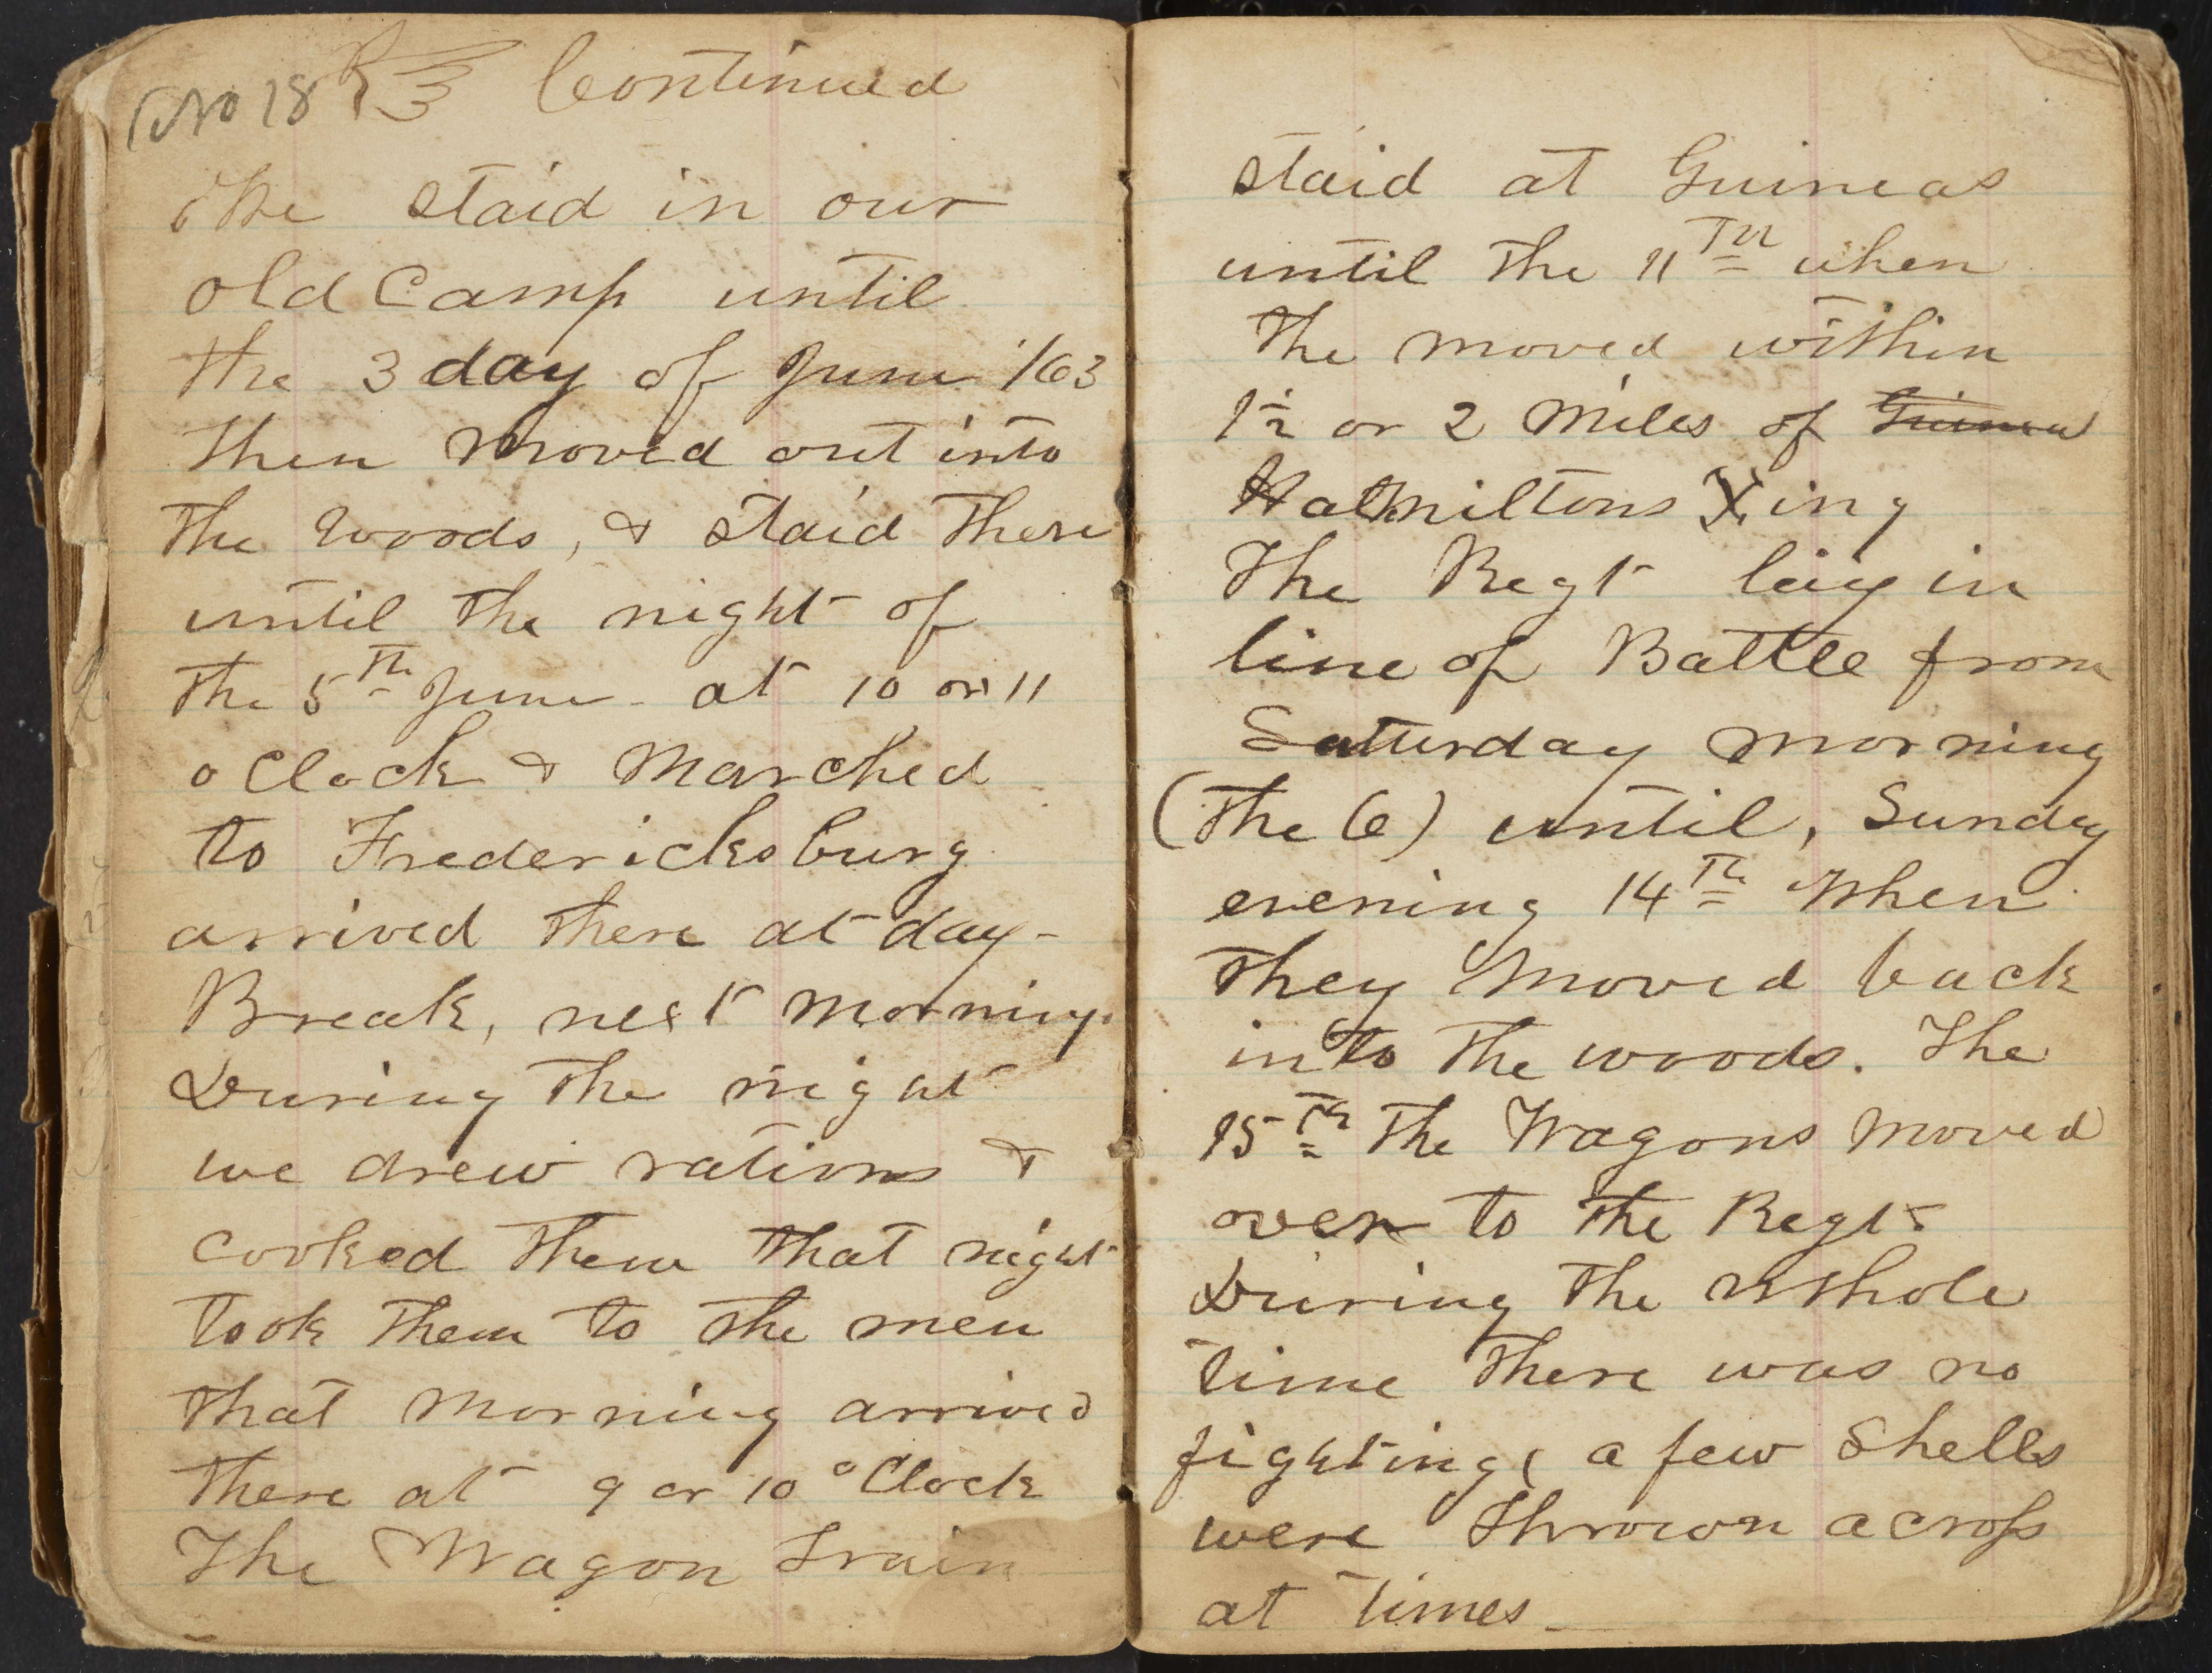 (No 18 Continued
We staid in our
old Camp until
the 3 day of June '/63
then moved out into
the woods, & staid there
until the night of
the 5th June - at 10 or 11
o Clock & Marched
to Fredericksburg
arrived there at day-
Break, next morning.
During the night
we drew rations &
cooked them that night
took them to the men
that morning arrived
there at 9 or 10 o Clock
The Wagon Train
staid at Guineas
until the 11th when
the moved within
1½ or 2 Miles of Guinea
Hamiltons Xing
The Regt lay in
line of Battle from
Satturday morning
(the 6) until, Sunday
evening 14th When
They Moved back
into the woods. The
15th the Wagons Moved
over to the Regt
During the Whole
time there was no
fighting, a few Shells
were Thrown across
at times